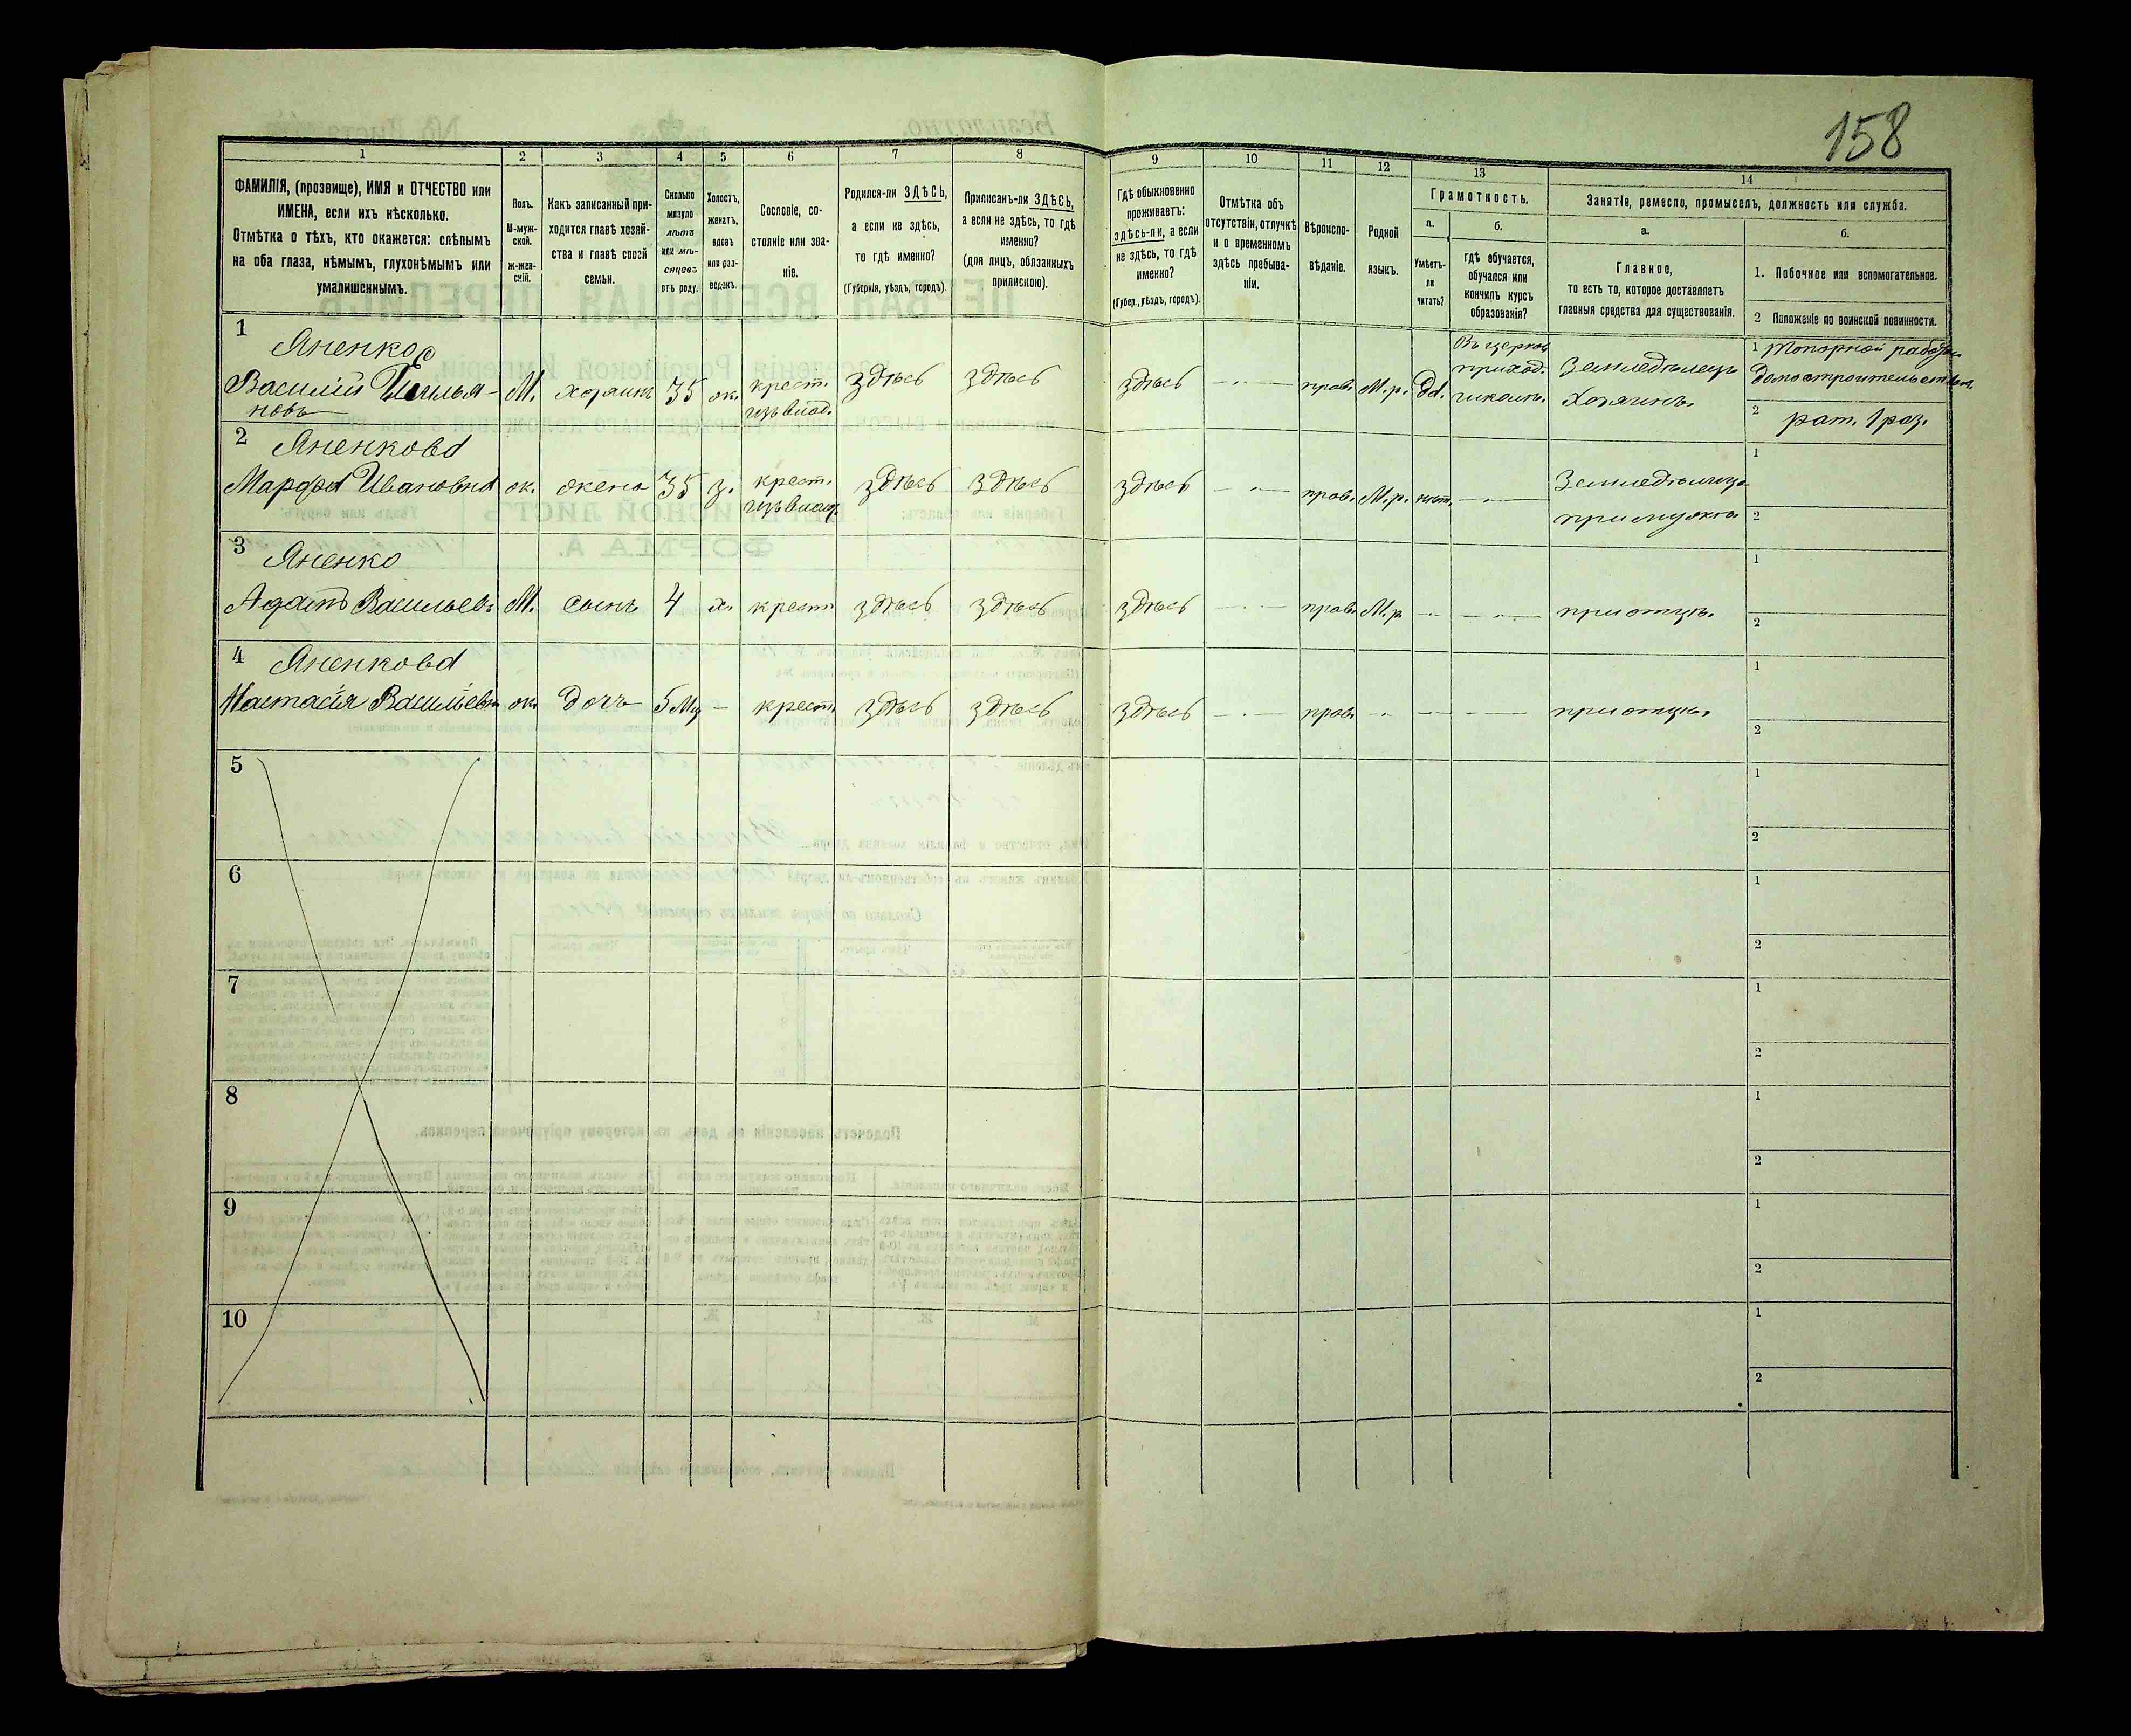 158
1
2
3
4
5
6
7
8
9
10
11
12
13
14
ФАМИЛІЯ, (прозвище), ИМЯ и ОТЧЕСТВО или
ИМЕНА, если ихъ нѣсколько.
Отмѣтка о тѣхъ, кто окажется: слѣпымъ
на оба глаза, нѣмымъ, глухонѣмымъ или
умалишеннымъ.
Полъ.
М-муж-
ской.
ж-жен-
скій.
Какъ записанный при-
ходится главѣ хозяй-
ства и главѣ своей
семьи.
Сколько
минуло
лѣтъ
или мѣ-
сяцевъ
отъ роду.
Холостъ,
женатъ,
вдовъ
или раз-
веденъ.
Сословіе, со-
стояніе или зва-
ніе.
Родился-ли ЗДѢСЬ,
а если не здѣсь,
то гдѣ именно?
(Губернія, уѣздъ, городъ).
Приписанъ-ли ЗДѢСЬ,
а если не здѣсь, то гдѣ
именно?
(для лицъ, обязанныхъ
припискою).
Гдѣ обыкновенно
проживаетъ:
здѣсь-ли, а если
не здѣсь, то гдѣ
именно?
(Губер., уѣздъ, городъ).
Отмѣтка объ
отсутствіи, отлучкѣ
и о временномъ
здѣсь пребыва-
ніи.
Вѣроиспо-
вѣданіе.
Родной
языкъ.
Грамотность.
а.
Умѣетъ-
ли
читать?
б.
гдѣ обучается,
обучался или
кончилъ курсъ
образованія?
Занятія, ремесло, промыселъ, должность или служба.
а.
Главное,
то есть то, которое доставляетъ
главныя средства для существованія.
б.
1. Побочное или вспомогательное.
2 Положеніе по воинской повинности.
1
Яненко
Василій Емилья-
новъ
М. хозяинъ 35 ж. крест. здѣсь здѣсь здѣсь прав. М.р. Да.
изъ влад.
Въ церков
приход.
школѣ.
Земледѣлецъ
Хозяинъ.
1 Топорной работы
домостроительством
2 рат. 1 раз.
2 Яненкова
Марфа Ивановна ж. жена 35 з. крест. здѣсь здѣсь здѣсь прав. М.р. нет.
изъ влад.
Земледѣлица
при мужѣ
1
2
3 Яненко
Васильевъ М. сынъ 4 х. крест. здѣсь здѣсь здѣсь прав. М.р. при отцѣ.
1
2
4 Яненкова
Настасія Васильевна ж. дочь 5 мц — крест. здѣсь здѣсь здѣсь прав. при отцѣ.
1
2
5
1
2
6
1
2
7
1
2
8
1
2
9
1
2
10
1
2